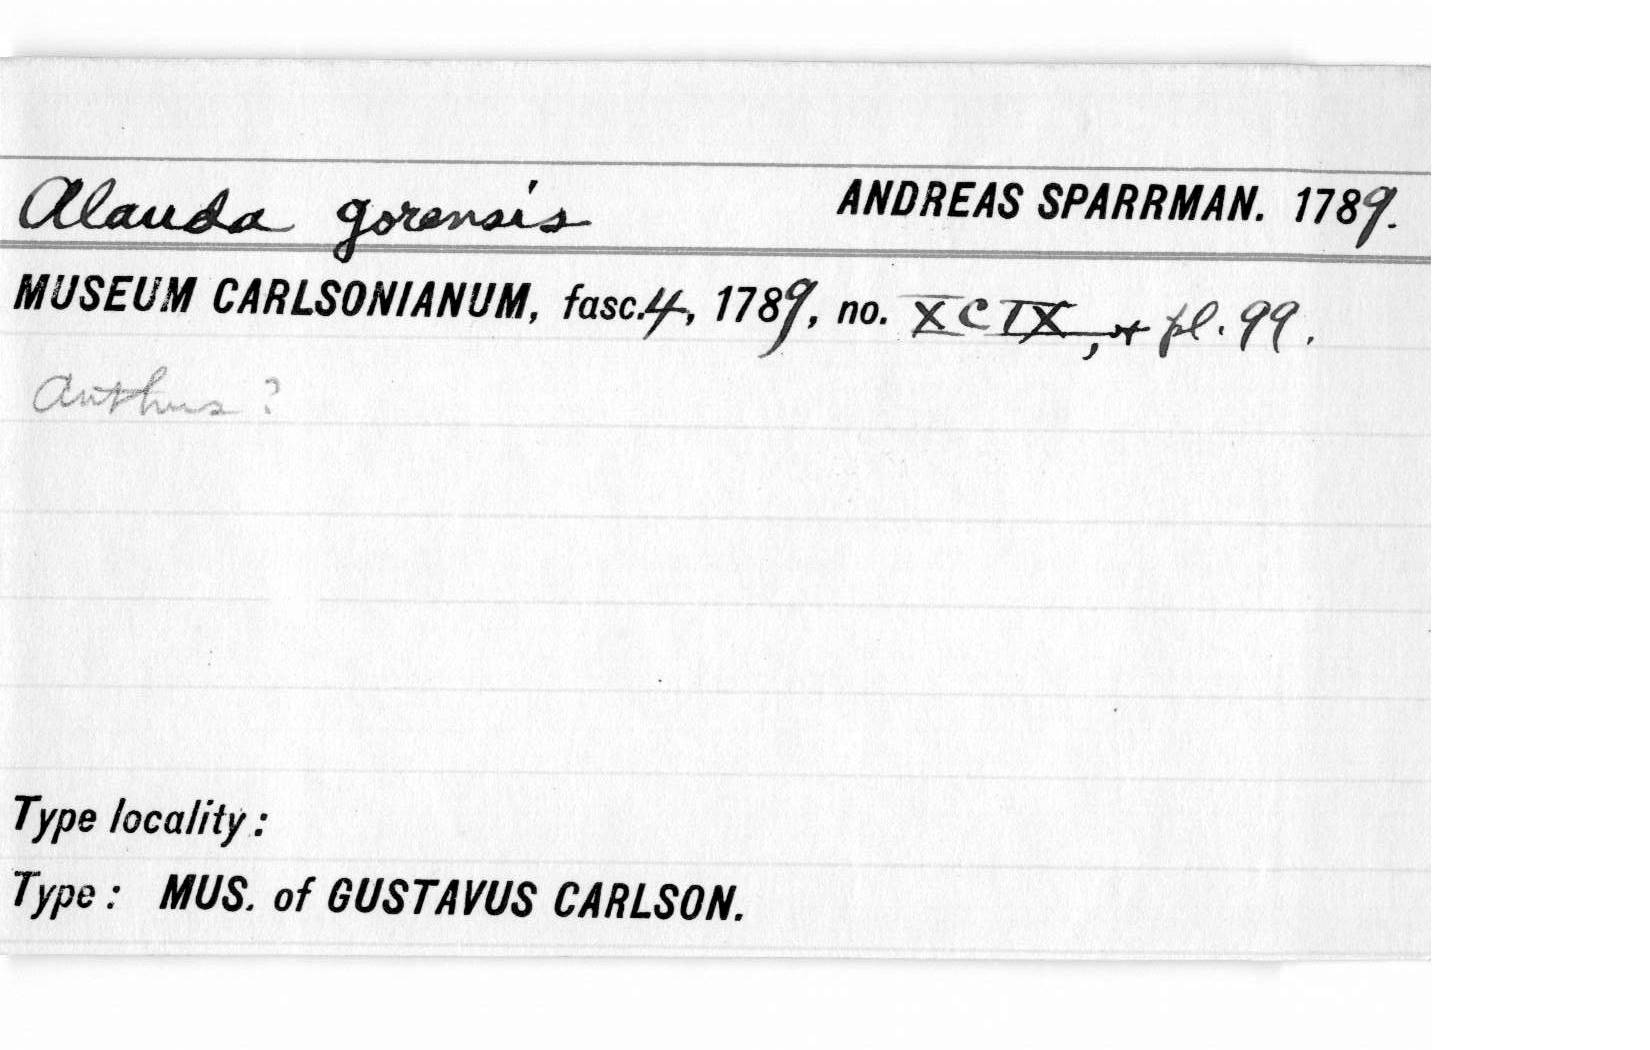 Alauda gorensis ANDREAS SPARRMAN. 1789.
MUSEUM CARLSONIANUM, fasc. 4, 1789, no. XCIX, + pl. 99.
Anthus ?
Type locality :
Type : MUS. of GUSTAVUS CARLSON.